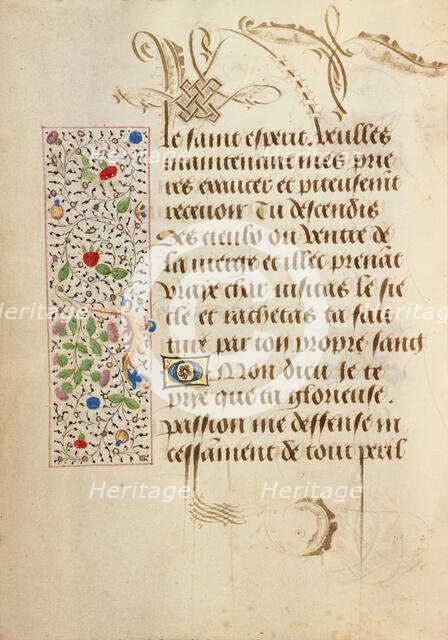 le saint esperit. Veulles
maintenant mes prie
res exaucer et piteusemt
recevoir Tu descendis
des cieulx ou ventre de
la vierge et illec prenāt
vraye char visitas le sie
cle et rachetas ta fai
ture par ton propre sang
O Mon dieu Je te
prye que ta glorieuse.
passion me deffense in
cessāment de tout peril
Heritage
Heritage
Heritage
Heritage
Heritage
Heritage